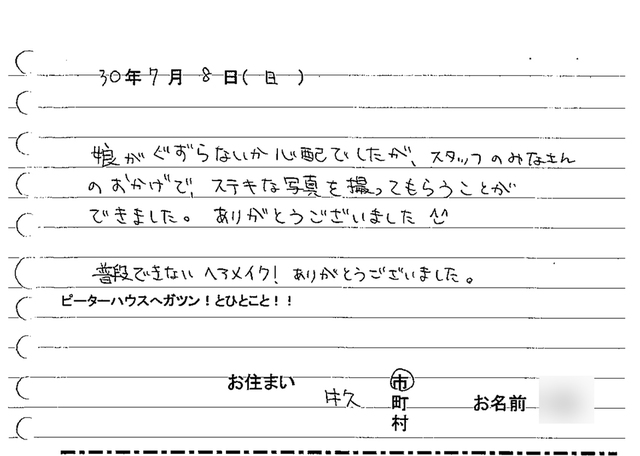 30年7月8日(日)
娘がぐずらないか心配でしたが、スタッフのみなさん
のおかげで、ステキな写真を撮ってもらうことが
できました。ありがとうございました^^
普段できないヘアメイク!ありがとうございました。
ピーターハウスへガツン!とひとこと!!
お住まい 牛久 市 お名前
町
村